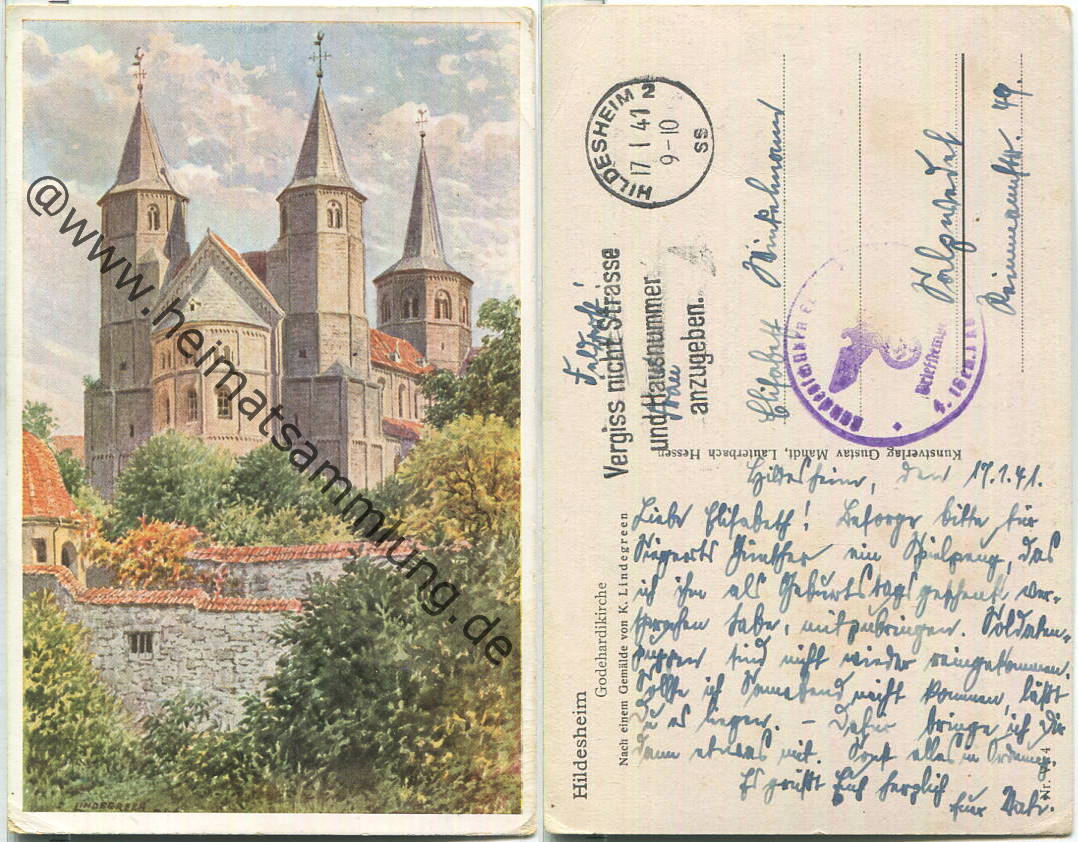 @www.heimatsammlung.de
LINDEGREEN
HILDESHEIM 2
17 1 41
9-10
SS
Vergiss nicht Strasse
und Hausnummer
anzugeben.
Feldpost!
Frau
Elisabeth Winkelmann
Salzwedel
Reimmannstr. 49.
Briefstempel
Kunstverlag Gustav Mandt, Lauterbach Hessen
Hildesheim
Godehardikirche
Nach einem Gemälde von K. Lindegreen
Nr. 4
Hildesheim, den 17.1.41.
Liebe Elisabeth! Besorge bitte für
Siegerts Günther ein Spielzeug, das
ich ihm als Geburtstagsgeschenk ver-
sprochen habe, mitzubringen. Soldaten-
puppen sind nicht wieder reingekommen.
Sollte ich Sonnabend nicht kommen, läßt
Du es liegen. – Dafür bringe ich Dir
dann etwas mit. Sonst alles in Ordnung.
Es grüßt Euch herzlich
Euer Vater.